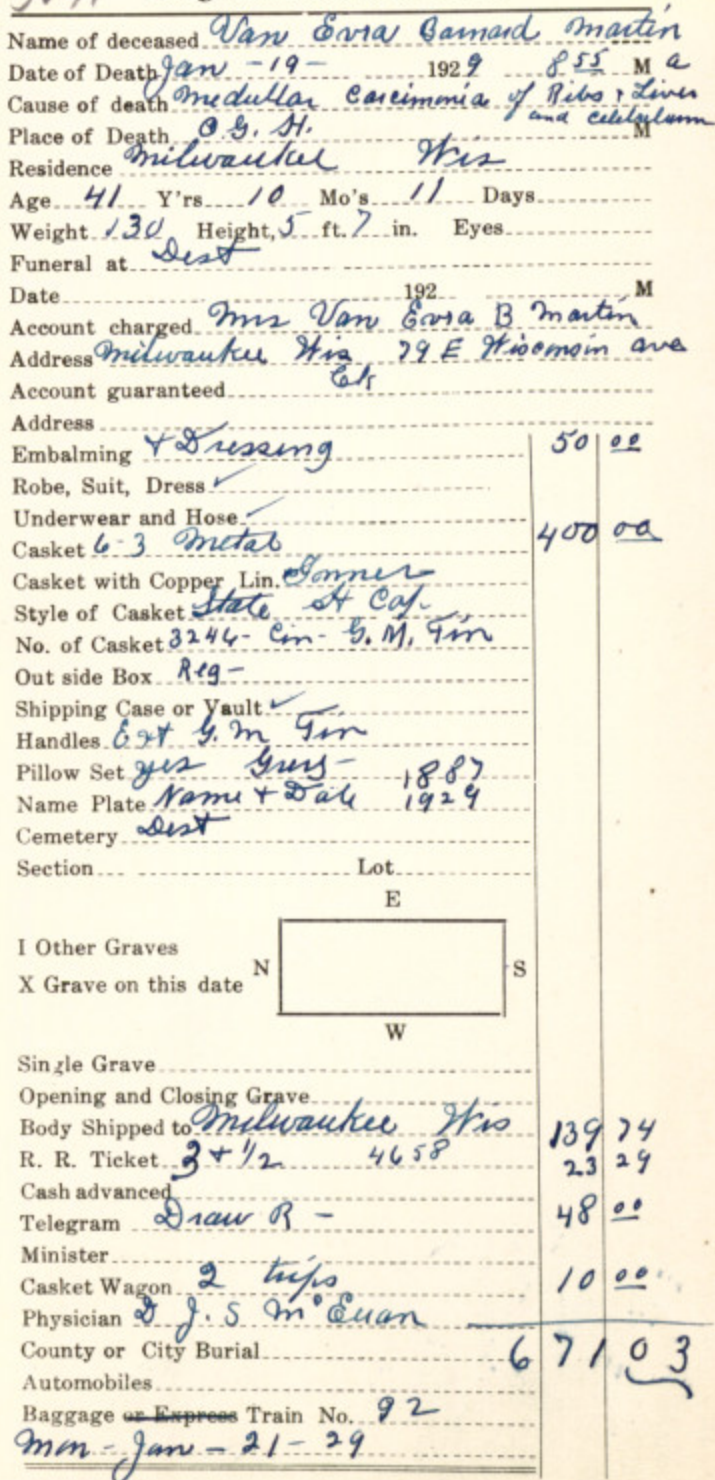 Name of deceased Van Evra Barnard Martin
Date of Death Jan - 19 - 1929 8 55 M a
Cause of death Medullar Carcimonia of Ribs + Liver
and
Place of Death O. G. H. M
Residence Milwaukee Wis
Age 41 Y'rs 10 Mo's 11 Days
Weight 130 Height, 5 ft. 7 in. Eyes
Funeral at Dest
Date 192 M
Account charged Mrs Van Evra B Martin
Address Milwaukee Wis 79 E Wisconsin ave
Account guaranteed
Address
Embalming + Dressing 50 00
Robe, Suit, Dress ✓
Underwear and Hose ✓
Casket 6-3 Metal 400 00
Casket with Copper Lin. Inner
Style of Casket State
No. of Casket 3246 - Cin - G. M. Fin
Out side Box Reg -
Shipping Case or Vault ✓
Handles Ext G. M Fin
Pillow Set yes 1887
Name Plate Name + Date 1929
Cemetery Dest
Section Lot
E
I Other Graves
N S
X Grave on this date
W
Single Grave
Opening and Closing Grave
Body Shipped to Milwaukee Wis 139 74
R. R. Ticket 3 + 1/2 4658 23 29
Cash advanced
Telegram Draw R - 48 00
Minister
Casket Wagon 2 trips 10 00
Physician D J. S McEuan
County or City Burial 671 03
Automobiles
Baggage or Express Train No. 92
Mon - Jan - 21 - 29